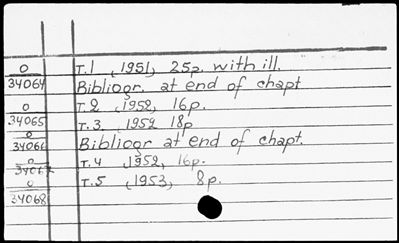 0 T.1 (1951) 25p. with ill.
34064 Bibliogr. at end of chapt
0 T.2 (1952, 16p.
34065 T.3. 1952 18p
0
34066 Bibliogr at end of chapt.
0 T.4 (1952, 16p.
34067
0 T.5 (1953, 8p.
34068